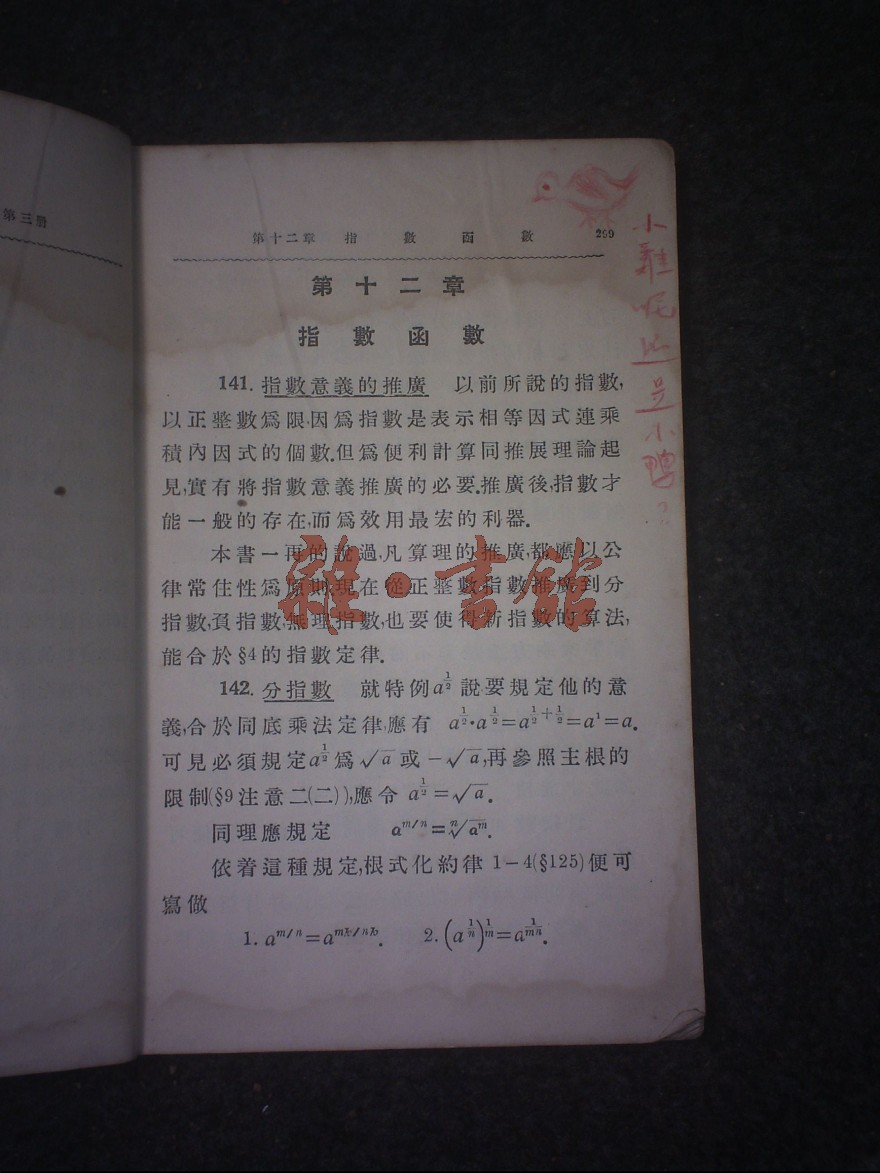 第三冊
第十二章 指 數 函 數 299
第十二章
指數函數
141. 指數意義的推廣 以前所說的指數,
以正整數爲限,因爲指數是表示相等因式連乘
積內因式的個數.但爲便利計算同推展理論起
見,實有將指數意義推廣的必要.推廣後,指數才
能一般的存在,而爲效用最宏的利器.
本書一再的說過,凡算理的推廣,都應以公
律常住性爲原則,現在從正整數指數推廣到分
指數,負指數,無理指數,也要使得新指數的算法,
能合於§4的指數定律.
142. 分指數 就特例a^{1/2}說要規定他的意
義,合於同底乘法定律,應有 a^{1/2}·a^{1/2}=a^{1/2+1/2}=a^1=a.
可見必須規定a^{1/2}爲√a或-√a,再參照主根的
限制(§9注意二(二)),應令 a^{1/2}=√a.
同理應規定 a^{m/n}=ⁿ√a^m.
依着這種規定,根式化約律1-4(§125)便可
寫做
1. a^{m/n}=a^{mk/nk}. 2. (a^{1/n})^{1/m}=a^{1/mn}.
小雞呢還是小鴨?
雜·書館